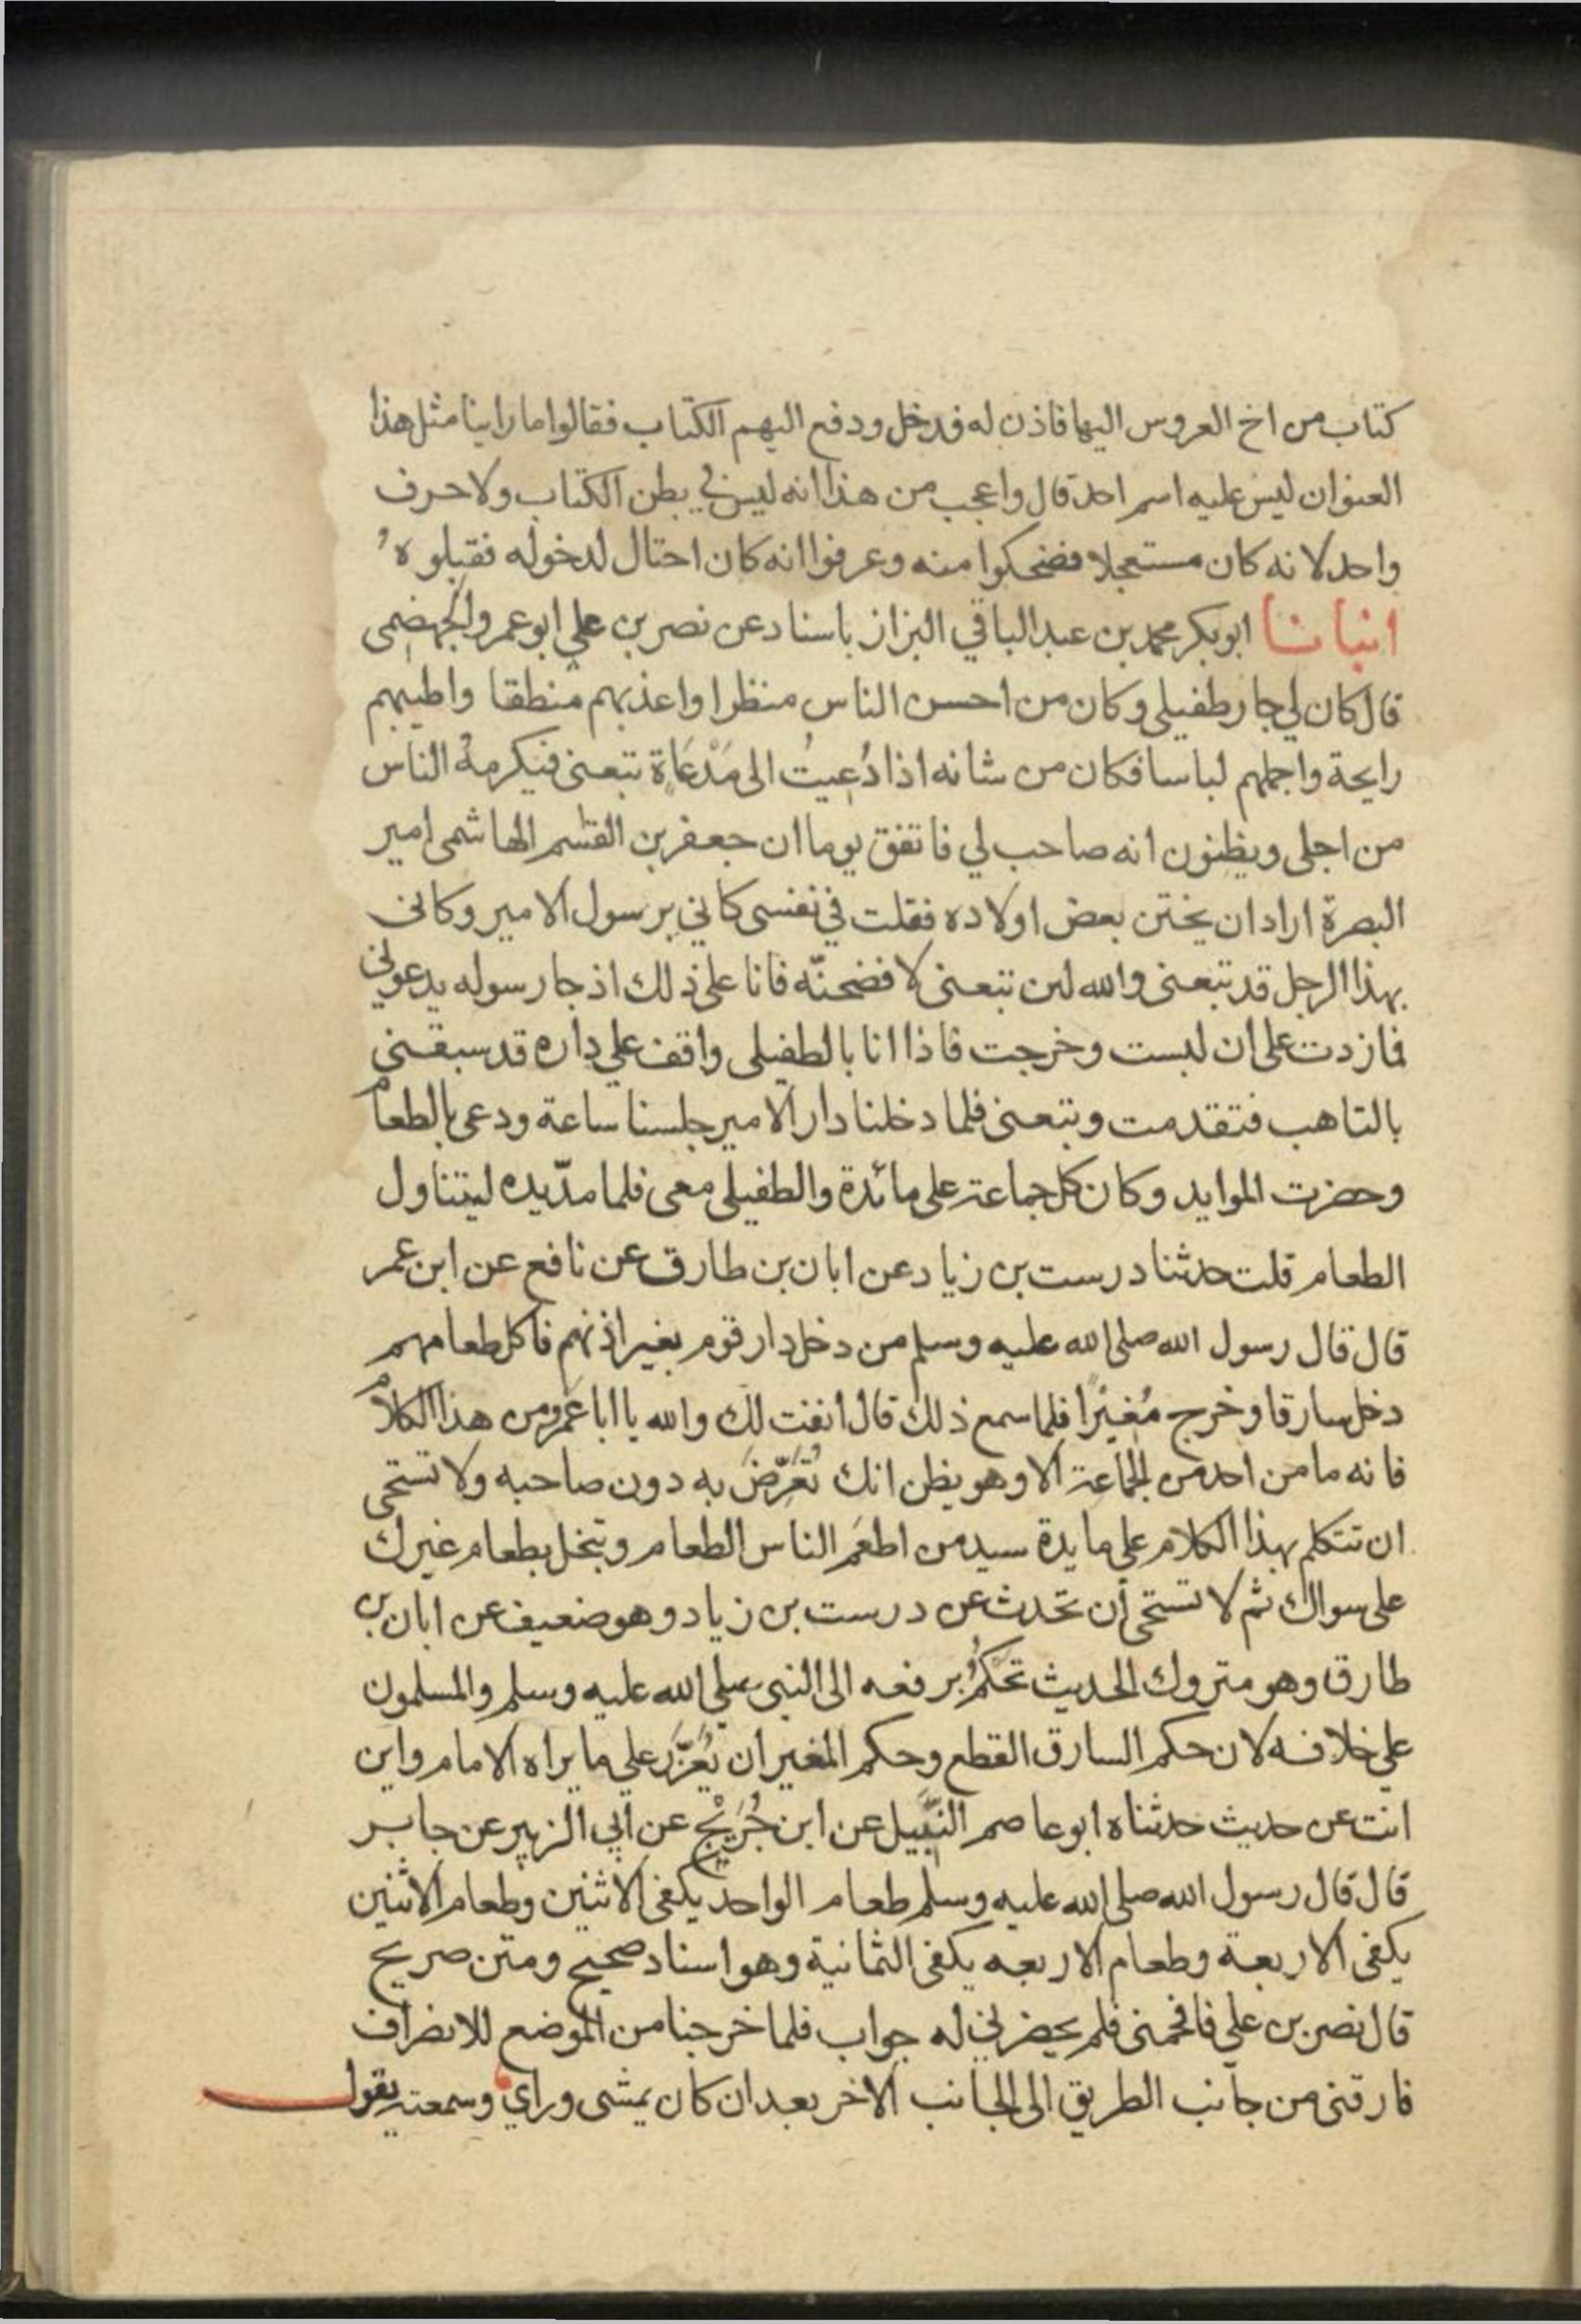 كتاب من اخ العروس اليها فاذن له فدخل ودفع اليهم الكتاب فقالوا ما راينا مثل هذا
العنوان ليس عليه اسم احد قال واعجب من هذا انه ليس في بطن الكتاب ولا حرف
واحد لانه كان مستعجلا فضحكوا منه وعرفوا انه كان احتال لدخوله فقبلوهُ
انبانا ابو بكر محمد بن عبد الباقي البزاز باسناد عن نصر بن علي ابو عمرو الجهضمى
قال كان لي جار طفيلى وكان من احسن الناس منظرا واعذبهم منطقا واطيبهم
رايحة واجملهم لباسا فكان من شانه اذا دُعيتُ الى مَدْعَاة تبعنى فيكرمهُ الناس
من اجلى ويظنون انه صاحب لي فاتفق يوما ان جعفر بن القسم الهاشمى امير
البصرة اراد ان يختن بعض اولاده فقلت في نفسى كاني برسول الامير وكانى
بهذا الرجل قد تبعنى والله لىن تبعنى لافضحنّه فانا على ذلك اذ جا رسوله يدعوني
فما زدت على ان لبست وخرجت فاذا انا بالطفيلى واقف على داره قد سبقنى
بالتاهب فتقدمت وتبعنى فلما دخلنا دار الامير جلسنا ساعة ودعى بالطعام
وحضرت الموايد وكان كل جماعة على مائدة والطفيلى معى فلما مدّ يده ليتناول
الطعام قلت حدثنا درست بن زياد عن ابان بن طارق عن نافع عن ابن عمر
قال قال رسول الله صلى الله عليه وسلم من دخل دار قوم بغير اذنهم فاكل طعامهم
دخل سارقا وخرج مُغيرًا فلما سمع ذلك قال انفت لك والله يا ابا عَمرو من هذا الكلام
فانه ما من احد من الجماعة الا وهو يظن انك تُعَرِّضَ به دون صاحبه ولا تستحى
ان تتكلم بهذا الكلام على مايدة سيد من اطعَم الناس الطعام وتبخل بطعام غيرك
على سواك ثم لا تستحى أن تحدث عن درست بن زياد وهو ضعيف عن ابان بن
طارق وهو متروك الحديث تحكُمُ برفعه الى النبى صلى الله عليه وسلم والمسلمون
علي خلافه لان حكم السارق القطع وحكم المغير ان يُعَزَّر على ما يراه الامام واين
انت عن حديث حدثناه ابو عاصم النَّبيل عن ابن جُرَيْج عن ابي الزبير عن جابر
قال قال رسول الله صلى الله عليه وسلم طعام الواحد يكفى الاثنين وطعام الاثنين
يكفى الاربعة وطعام الاربعه يكفى الثمانية وهو اسناد صحيح ومتن صريح
قال نصر بن علي فافحمنى فلم يحضرني له جواب فلما خرجنا من الموضع للانصراف
فارقنى من جانب الطريق الى الجانب الاخر بعد ان كان يمشى وراي وسمعته يقول